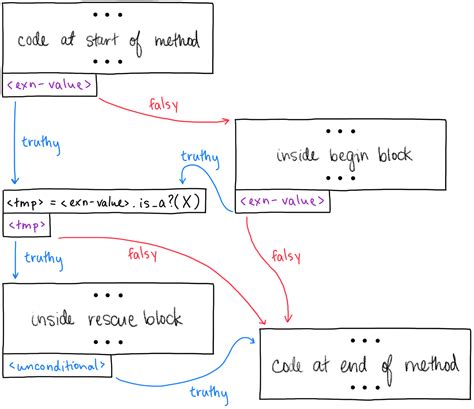 code at start of method
<exn-value>
falsy
truthy
inside begin block
truthy
<tmp> = <exn-value>.is_a?(X)
<exn-value>
<tmp>
falsy
falsy
truthy
inside rescue block
code at end of method
<unconditional>
truthy